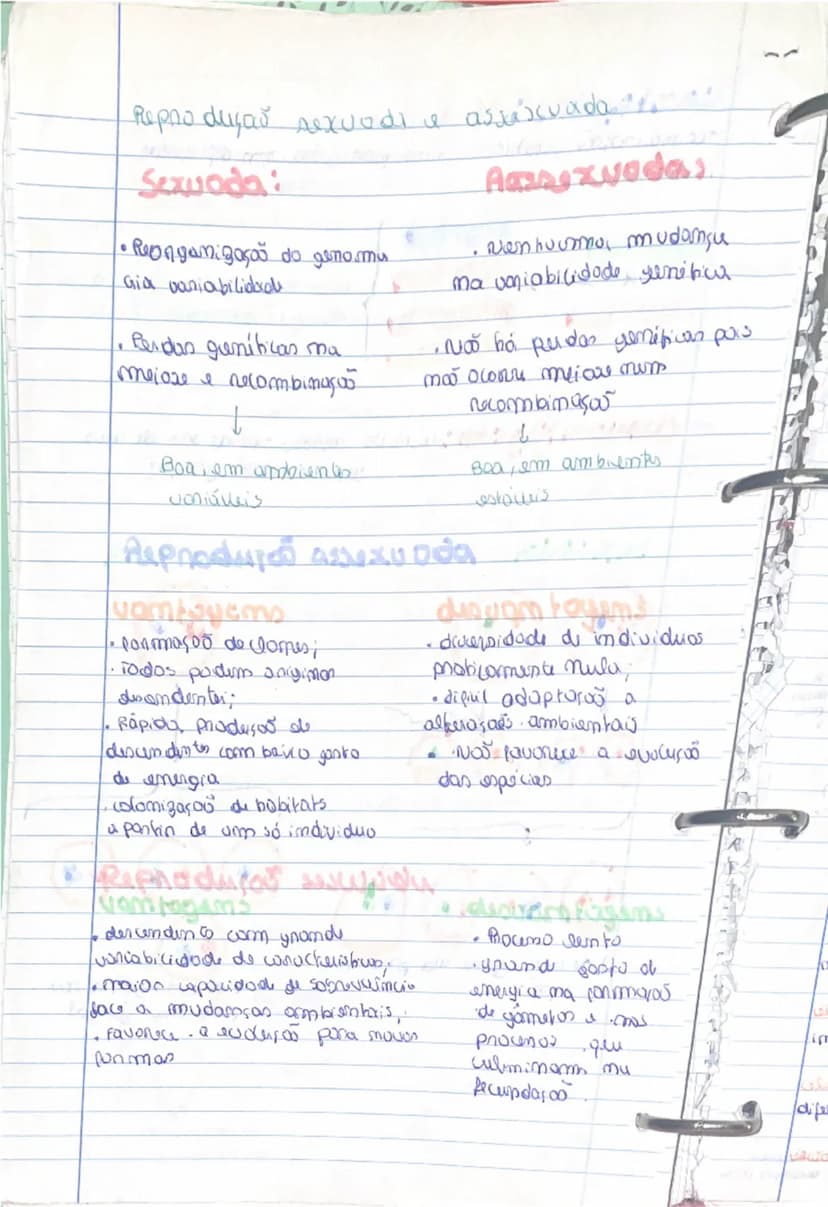 Reprodução sexuada e assexuada
Sexuada:
• Reorganização do genoma
cria variabilidade
• Perdas genéticas na
meiose e recombinação
↓
Boa, em ambientes
variáveis
Assexuada:
. Nenhuma, mudança
na variabilidade genética
. Não há perdas genéticas pois
não ocorre meiose nem
recombinação
↓
Boa, em ambientes
estáveis
Reprodução assexuada
vantagens
• formação de clones;
. Todos podem originar
descendentes;
. Rápida produção de
descendentes com baixo gasto
de energia
. colonização de habitats
a partir de um só individuo
desvantagens
. diversidade de individuos
praticamente nula;
• dificil adaptação a
alterações ambientais
• Não favorece a evolução
das espécies
Reprodução sexuada
vantagens
. descendentes com grande
variabilidade de características;
. maior capacidade de sobrevivência
face a mudanças ambientais,
. Favorece a evolução para novas
formas
desvantagens
• Processo lento
. grande gasto de
energia na formação
de gâmetas e nos
processos que
culminam na
fecundação.